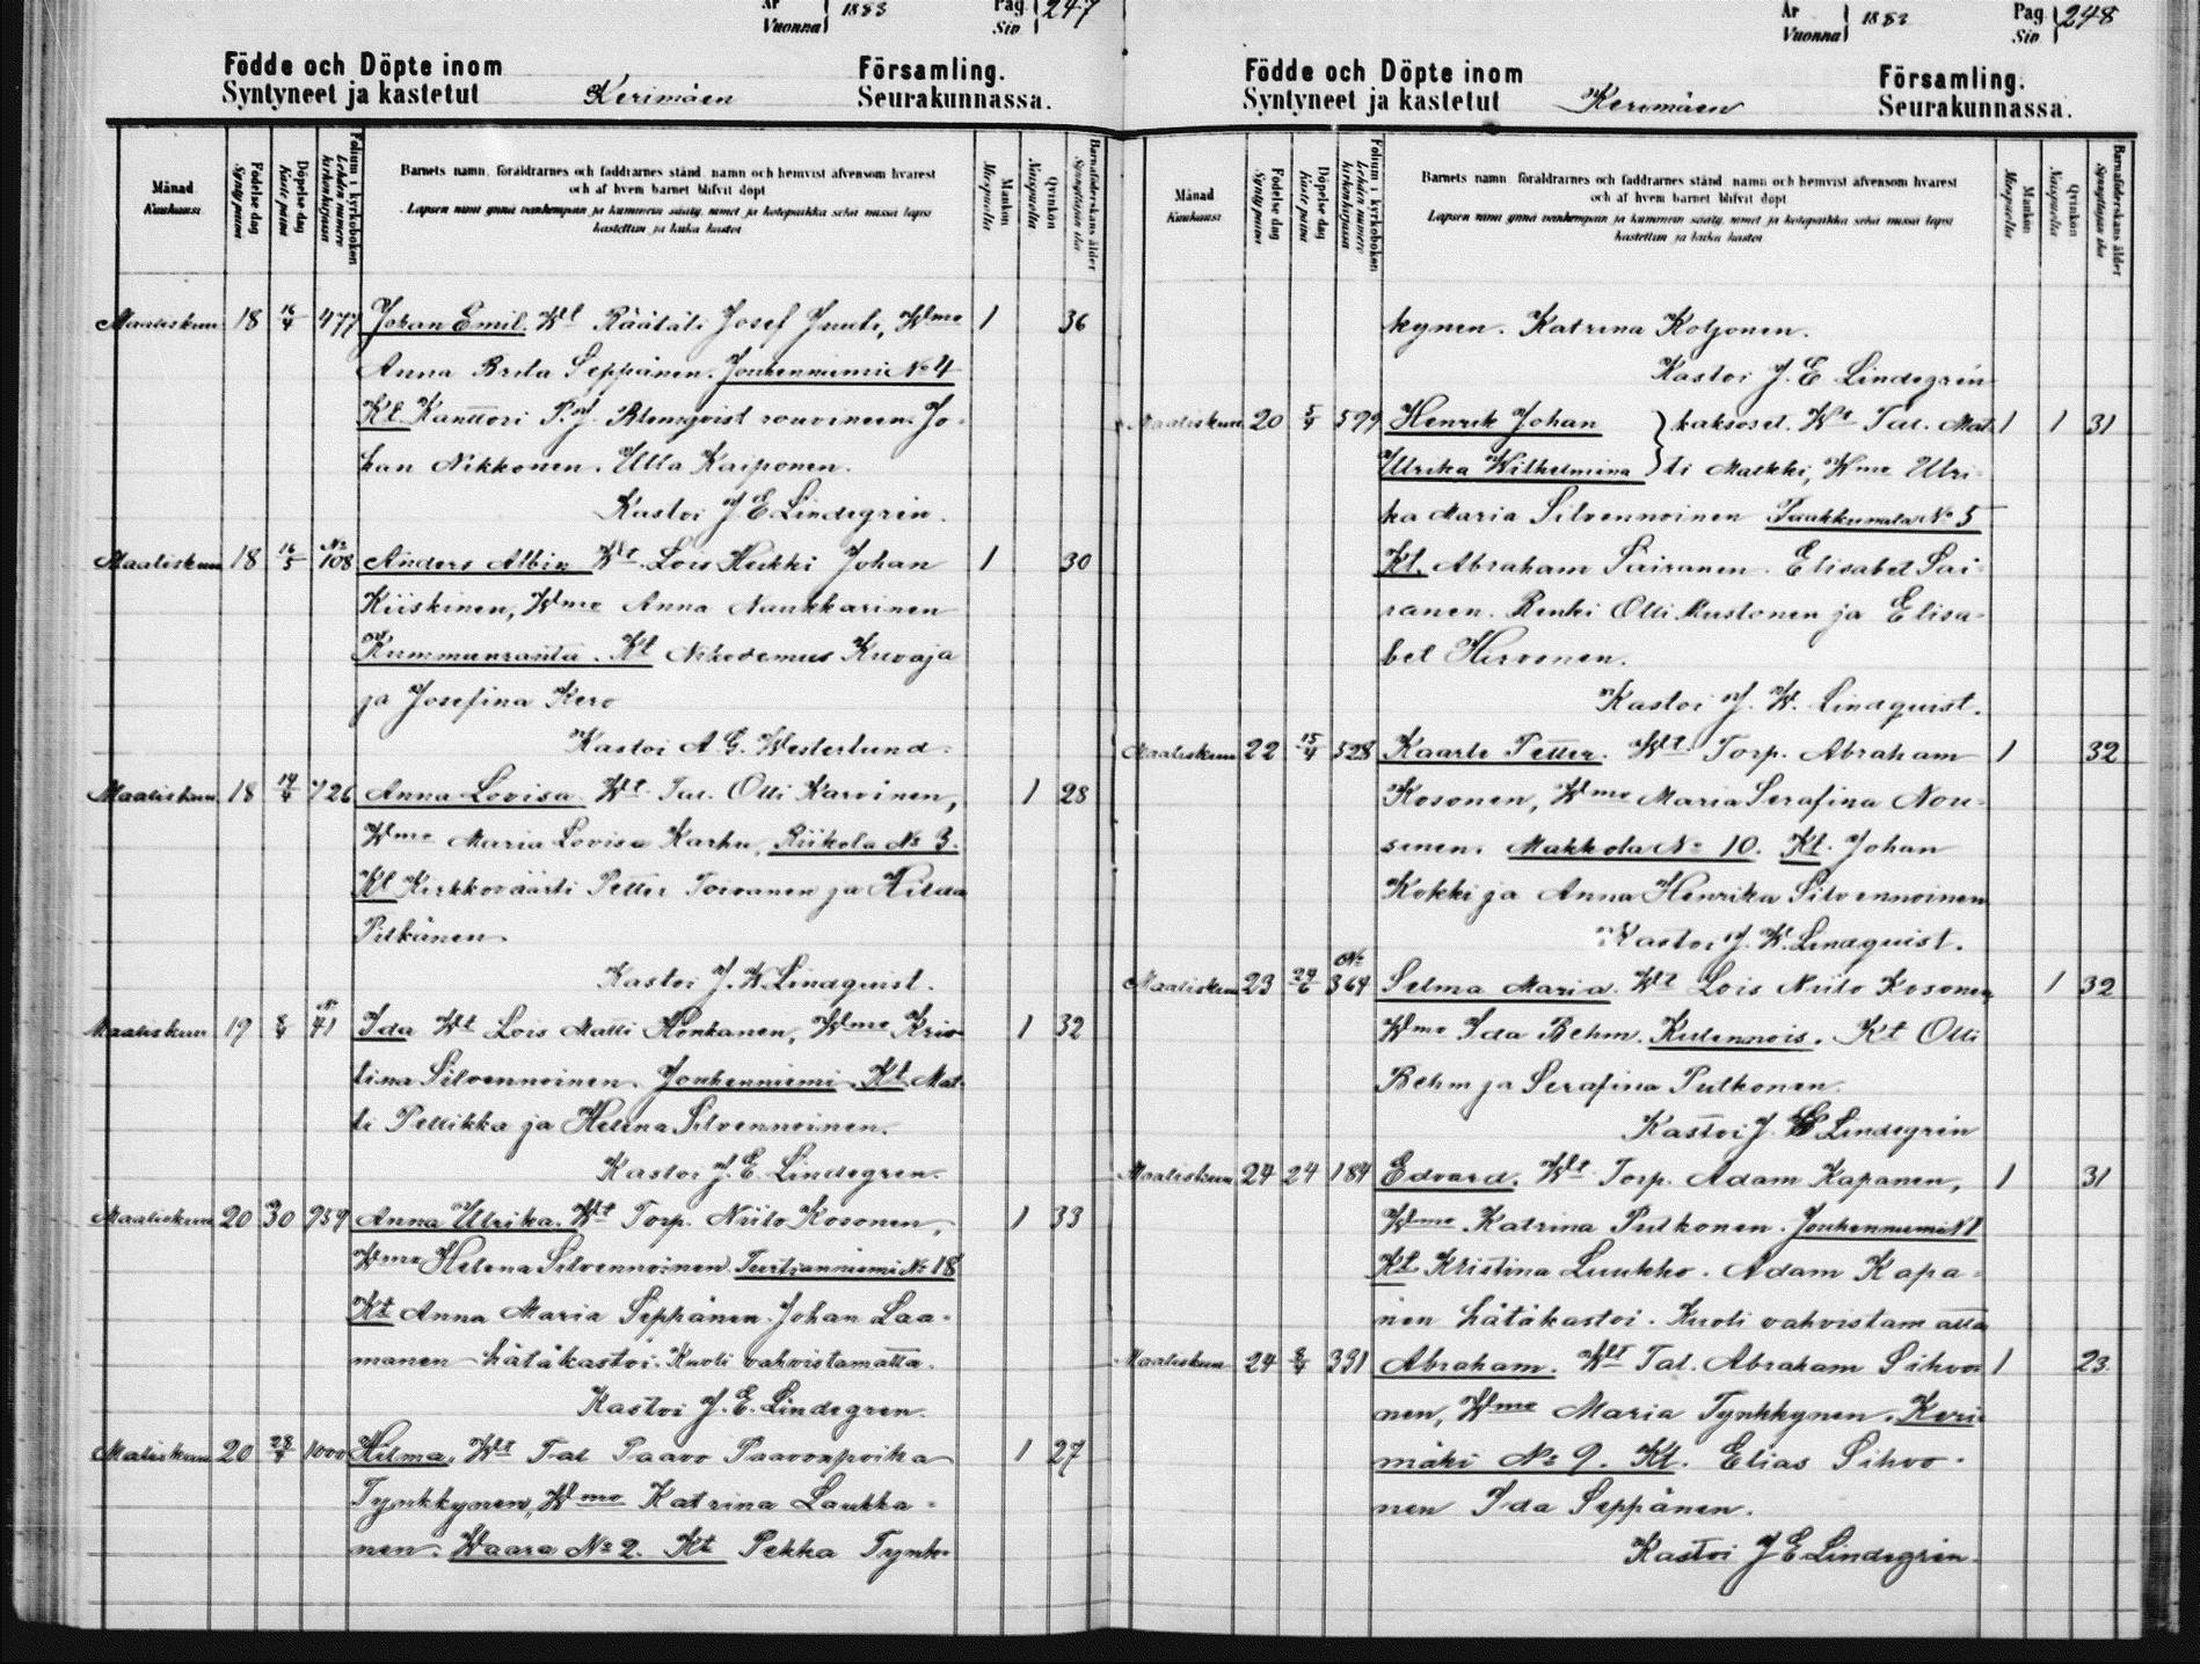 År
Vuonna
1883
Pag
Siv
247
Födde och Döpte inom
Syntyneet ja kastetut
Kerimäen
Församling.
Seurakunnassa.
Månad
Kuukausi
Födelse dag
Synty päivä
Döpelse dag
Kaste päivä
Folium i kyrkoboken
Lehden numero kirkonkirjassa
Barnets namn, föräldrarnes och faddrarnes stånd, namn och hemvist äfvensom hvarest
och af hvem barnet blifvit döpt
Lapsen nimi ynnä vanhempain ja kummein sääty, nimet ja kotopaikka sekä missä lapsi
kastettiin ja kuka kastoi
Mankön
Miespuolta
Qvinkön
Naispuolta
Barnaföderskans ålder
Synnyttäjän ikä
Maaliskuu 18 16/4 477 Johan Emil. Wt Räätäli Josef Juuti, Wmo 1 36
Anna Brita Seppänen. Jouhenniemi No 4
Kt. Kanttori P. J. Blomqvist rouvineen. Jo-
han Nikkonen. Ulla Kaiponen.
Kastoi J. E. Lindegren.
Maaliskuu 18 16/5 No 108 Anders Albin Wt. Lois Heikki Johan 1 30
Kiiskinen, Wmo Anna Naukkarinen
Kummunranta. Kt Nikodemus Kuvaja
ja Josefina Kero
Kastoi A. G. Westerlund.
Maaliskuu 18 14/4 726 Anna Lovisa Wt. Tal. Olli Karvinen, 1 28
Wmo Maria Lovisa Karhu, Riikola No 3.
Kt Kirkkoväärti Petter Toivanen ja Hilda
Pitkänen.
Kastoi J. W. Lindquist.
Maaliskuu 19 8/4 No 41 Ida Wt Lois Matti Honkanen, Wmo Kris- 1 32
tina Silvennoinen. Jouhenniemi. Kt. Mat-
ti Pellikka ja Helena Silvennoinen.
Kastoi J. E. Lindegren.
Maaliskuu 20 30 959 Anna Ulrika. Wt Torp. Niilo Kosonen, 1 33
Wmo Helena Silvennoinen. No 18
Kt Anna Maria Seppänen. Johan Laa-
manen hätäkastoi. Kuoli vahvistamatta.
Kastoi J. E. Lindegren.
Maliskuu 20 28/4 1000 Hilma, Wt Tal Paavo Paavonpoika 1 27
Tynkkynen, Wmo Katrina Laukka-
nen. Waara No 2. Kt Pekka Tynk-
År
Vuonna
1883
Pag
Siv
248
Födde och Döpte inom
Syntyneet ja kastetut
Kerimäen
Församling.
Seurakunnassa.
Månad
Kuukausi
Födelse dag
Synty päivä
Döpelse dag
Kaste päivä
Folium i kyrkoboken
Lehden numero kirkonkirjassa
Barnets namn, föräldrarnes och faddrarnes stånd, namn och hemvist äfvensom hvarest
och af hvem barnet blifvit döpt
Lapsen nimi ynnä vanhempain ja kummein sääty, nimet ja kotopaikka sekä missä lapsi
kastettiin ja kuka kastoi
Mankön
Miespuolta
Qvinkön
Naispuolta
Barnaföderskans ålder
Synnyttäjän ikä
kynen. Katrina Koljonen.
Kastoi J. E. Lindegren
Maaliskuu 20 5/4 599 Henrik Johan } kaksoset. Wt Tal. Mat- 1 1 31
Ulrika Wilhelmina } ti Malkki, Wmo Ulri-
ka Maria Silvennoinen No 5
Kt. Abraham Sairanen. Elisabet Sai-
ranen. Renki Olli Rustonen ja Elisa-
bet Hirvonen.
Kastoi J. W. Lindquist.
Maaliskuu 22 15/4 528 Kaarle Petter. Wt. Torp. Abraham 1 32
Kosonen, Wmo Maria Serafina Nou-
sinen. Makkola No 10. Kt. Johan
Kokki ja Anna Henrika Silvennoinen
Kastoi J. W. Lindquist.
Maaliskuu 23 24/6 No 364 Selma Maria. Wt Lois Niilo Kosonen 1 32
Wmo Ida Behm. Kulennois. Kt Olli
Behm ja Serafina Pulkonen.
Kastoi J. E Lindegren
Maaliskuu 24 24 184 Edvard. Wt Torp. Adam Kapanen, 1 31
Wmo Katrina Putkonen. Jouhenniemi N 1
Kt Kristina Luukko. Adam Kapa-
nen hätäkastoi. Kuoli vahvistamatta
Maaliskuu 24 8/4 391 Abraham. Wt Tal. Abraham Sihvo- 1 23
nen, Wmo Maria Tynkkynen. Keri-
mäki No 9. Kt. Elias Sihvo-
nen Ida Seppänen.
Kastoi J E Lindegren.